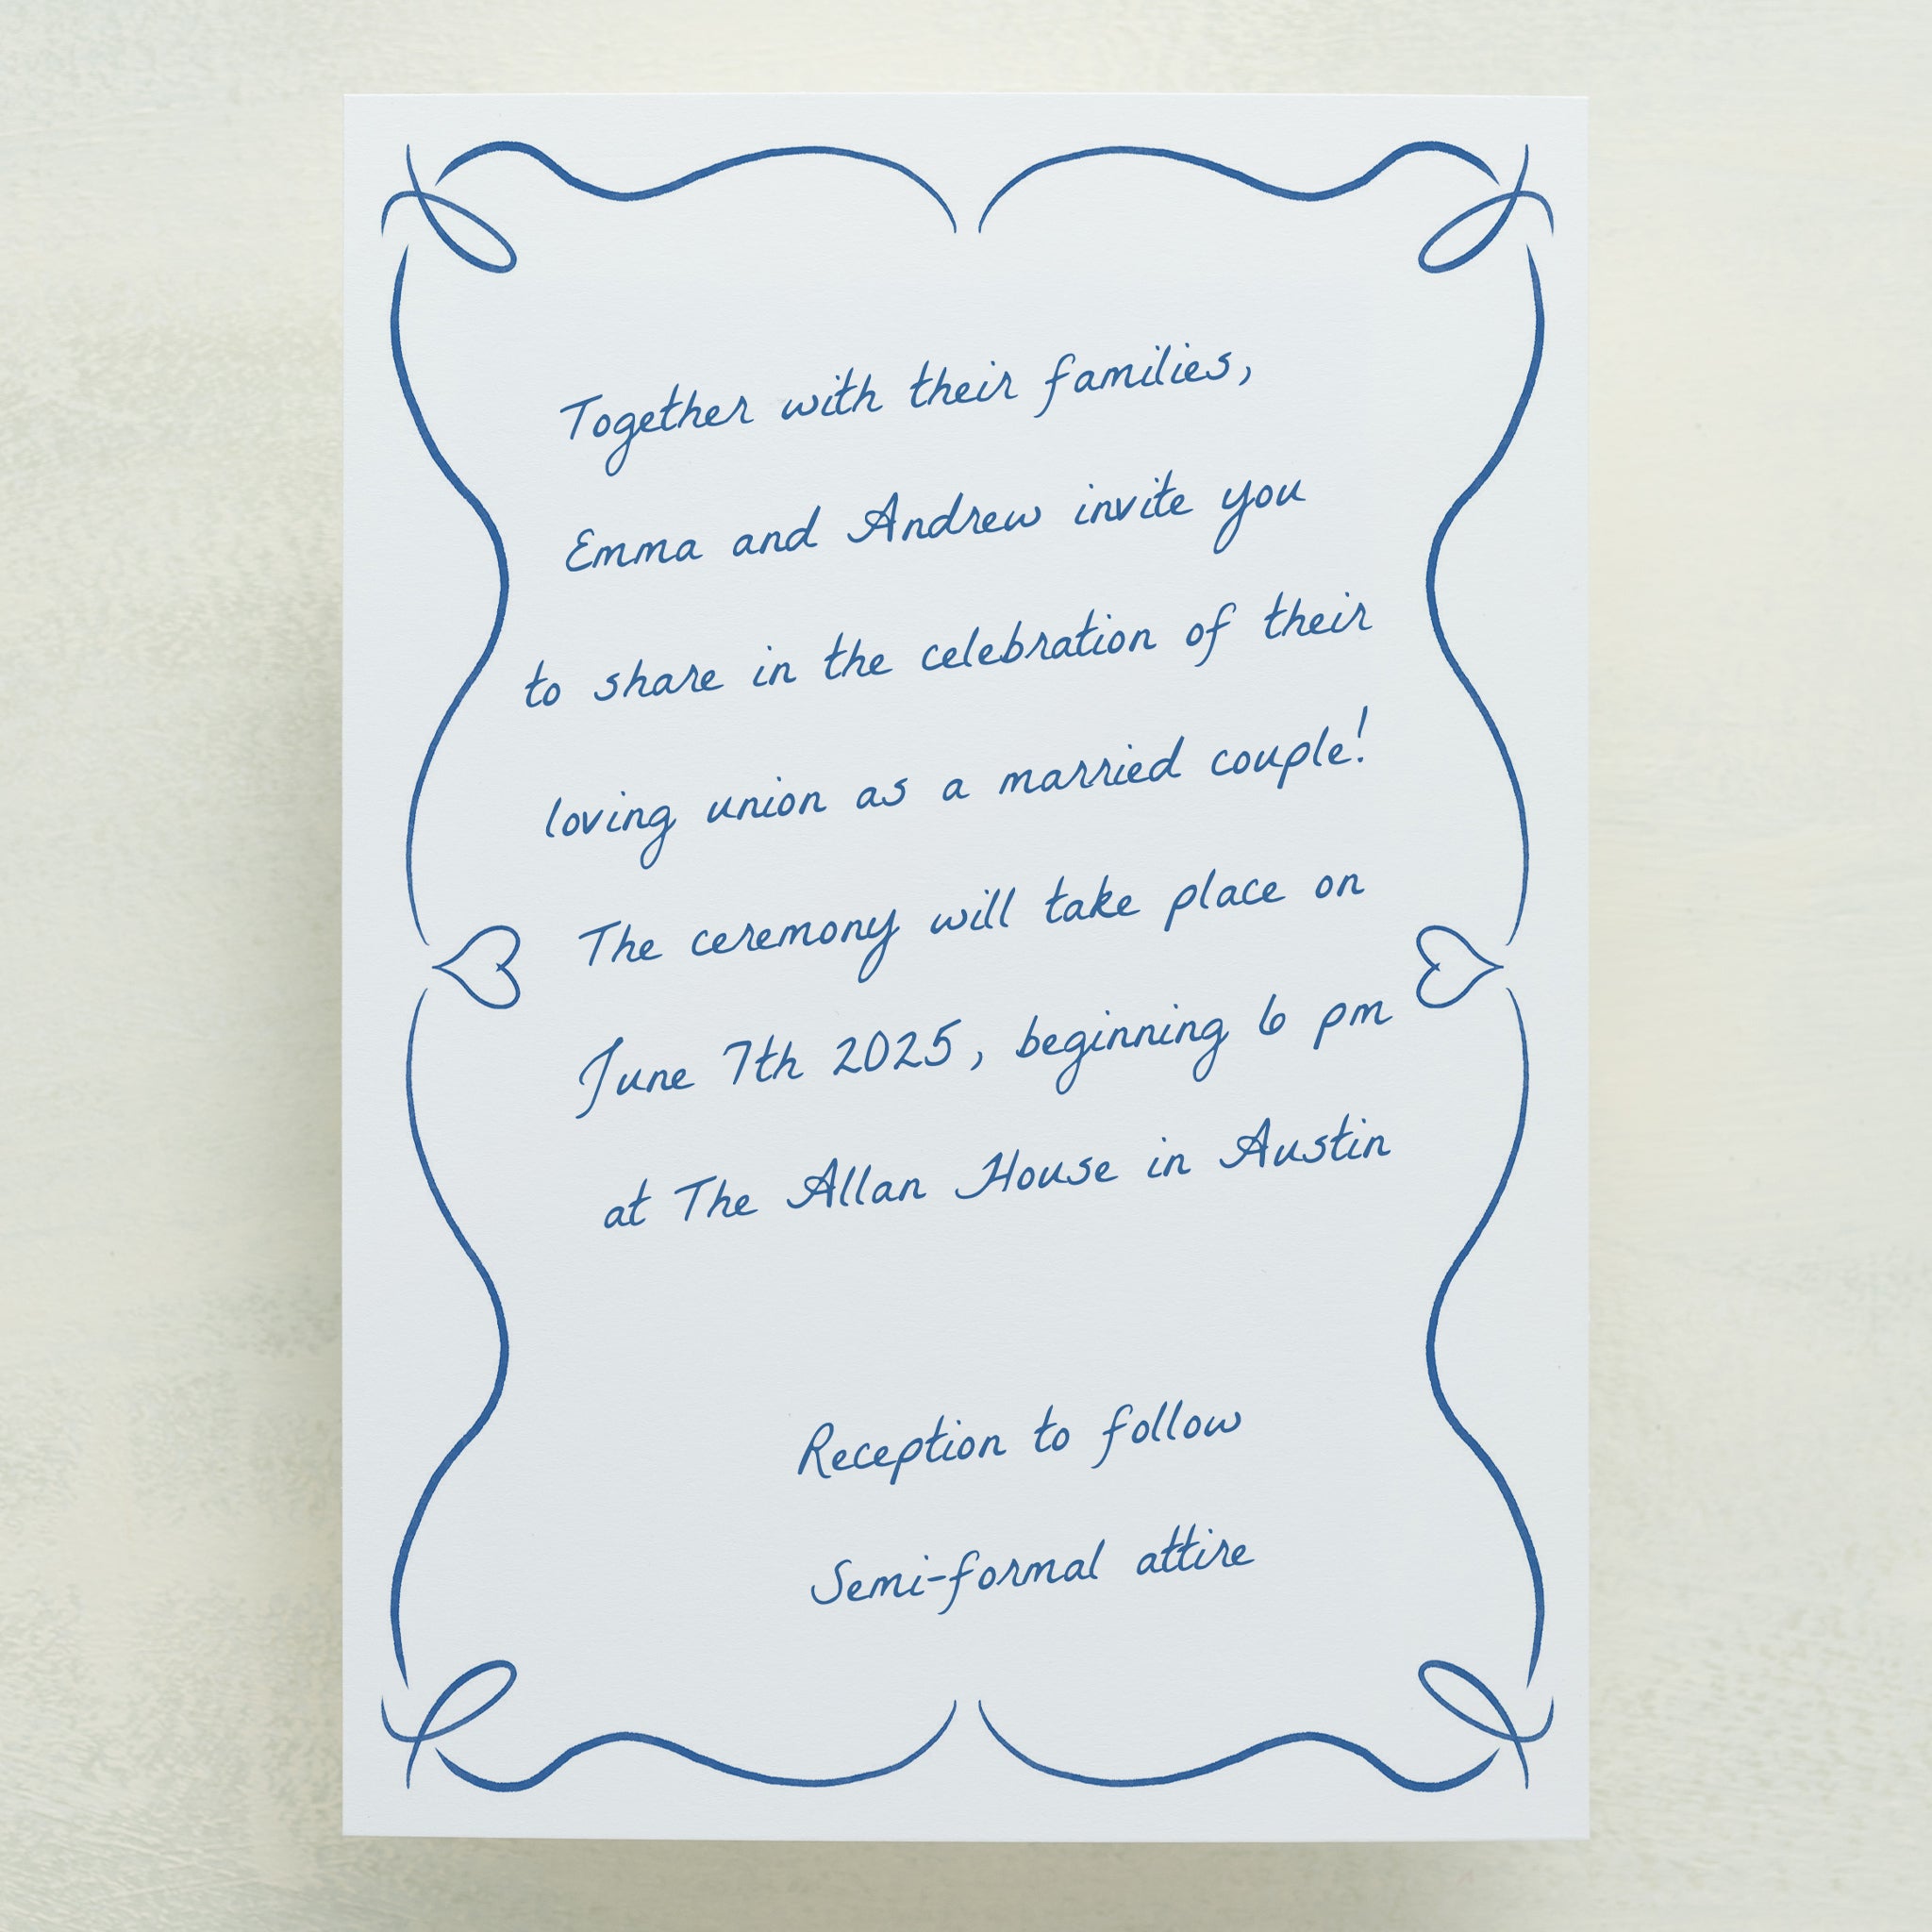 Together with their families,
Emma and Andrew invite you
to share in the celebration of their
loving union as a married couple!
The ceremony will take place on
June 7th 2025, beginning 6 pm
at The Allan House in Austin
Reception to follow
Semi-formal attire